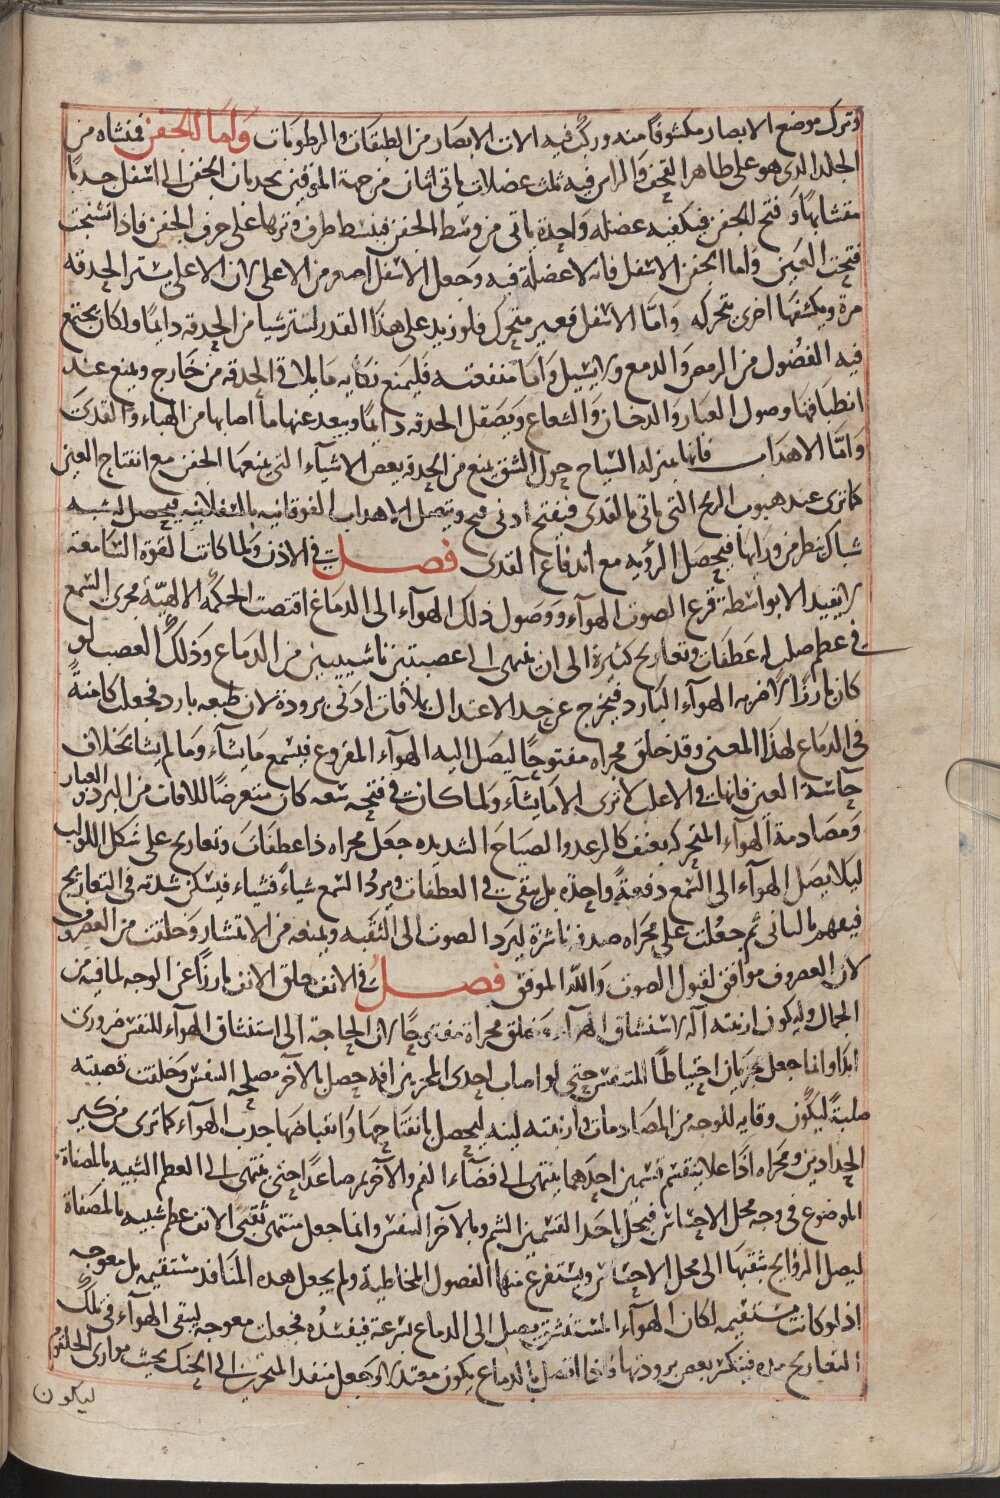 وترك موضع الابصار مكشوفا منه وركب فيه الات الابصار من الطبقات والرطوبات واما الجفن فمنشاه من
الجلد الدى هو على ظاهر القحف والراس فيه ثلث عضلات ياتى اثنان من جهة الموقين يجدبان الجفن الى اسفل جدبا
متشابها وفتح الجفن فيكفيه عضله واحدة ياتى من وسط الجفن فينبسط طرف وترها على حرف الجفن فاذا تشنجت
فتحت العين واما الجفن الاسفل فانه لا عضلة فيه وجعل الاسفل اصغر من الاعلى لان الاعلى يستر الحدقه
مرة ويكشفها اخرى بتحركه واما الاسفل فغير متحرك فلو زيد على هذا القدر لستر شيا من الحدقه دايما ولكان يجتمع
فيه الفضول من الرمص والدمع ولا يسيل واما منفعته فليمنع نكايه ما يلاقى الحدقه من خارج ويمنع عند
انطباقها وصول الغبار والدخان والشعاع ويصقل الحدقه دايما ويبعد عنها ما اصابها من الهباء والقدى
واما الاهداب فانها بمنزله السياج حول الشئ يمنع من الحدقة بعض الاشياء التى يمنعها الجفن مع انفتاح العين
كما ترى عند هبوب الريح التى ياتى بالقدى فينفتح ادنى فتح ويتصل الاهداب الفوقانيه بالسفلانيه فيحصل لشبه
شباك ينظر من ورايها فيحصل الرؤيه مع اندفاع القدى فصل فى الاذن ولما كانت القوة السامعة
لا يفيد الا بواسطة قرع الصوت الهوآء ووصول ذلك الهوآء الى الدماغ اقتضت الحكمه الالهيه مجرى السمع
فى عظم صلب له عطفات وتعاريج كثيرة الى ان ينتهى الى عصبتين ناشيتين من الدماغ وذلك العصب لو
كان بارزا لاضر به الهوآء البارد فيخرج عن حد الاعتدال بملاقات ادنى برودة لان طبعه بارد فجعل كامنة
فى الدماغ لهذا المعنى وقد خلق مجراه مفتوحا ليصل اليه الهوآء المقروع فيسمع ما يشآء وما لم يشا بخلاف
حآسة العين فانها فى الاغلب لا ترى الا ما يشآء ولما كان فى فتحه سعه كان متعرضا للافات من البرد والغبار
ومصادمة الهوآء المتحرك بعنف كالرعد والصياح الشديده جعل مجراه ذا عطفات وتعاريج على شكل اللولب
ليلا يصل الهوآء الى السمع دفعة واحدة بل يبقى فى العطفات ويرد السمع شياء فشياء فيسكن شدته فى التعاريج
فيفهم بالتانى ثم جعلت على مجراه صدفة ناشزة ليرد الصوت الى الثقبه ويمنعه من الانتشار وخلقت من الغضروف
لان الغضروف موافق لقبول الصوت والله الموفق فصل فى الانف خلق الانف بارزا عن الوجه لما فيه من
الجمال وليكون ارنبته آلة لاستنشاق الهوآء وخلق مجراة مفتوحا لان الحاجة الى استنشاق الهوآء للنفس ضرورى
ابدا وانما جعل مجريان احتياطا للتنفس حتى لو اصاب احدى المجريين افه حصل بالآخر مصلحه النفس وخلقت قصبته
صلبة ليكون وقايه للوجه من المصادمات وارنبته لينه ليحصل بانفتاحها وانقباضها جدب الهوآء كما ترى من كير
الحدادين ومجراه اذا علا ينقسم قسمين احدهما ينتهى الى فضآء الفم والآخر يمر صاعدا حتى ينتهى الى العظم الشبيه بالمصفاة
الموضوع فى وجه محل الاحساس فيحصل باحد القسمين الشم وبالآخر النفس وانما جعل منتهى ثقبتى الانف عظم شبيه بالمصفاة
ليصل الروايح بثقبها الى محل الاحساس ويستفرغ منها الفضول المخاطية ولم يجعل هذه المنافذ مستقيمه بل معوجه
اذ لو كانت مستقيمه لكان الهوآء المستنشق يصل الى الدماغ بسرعة فيفسده فجعلت معوجه ليبقى الهوآء فى تلك
التعاريج مده فينكسر بعض برودتها فاذا اتصل بالدماغ يكون معتدلا وجعل منفد المنخرين الى الحنك بحيث يوازى الحلقوم
ليكون